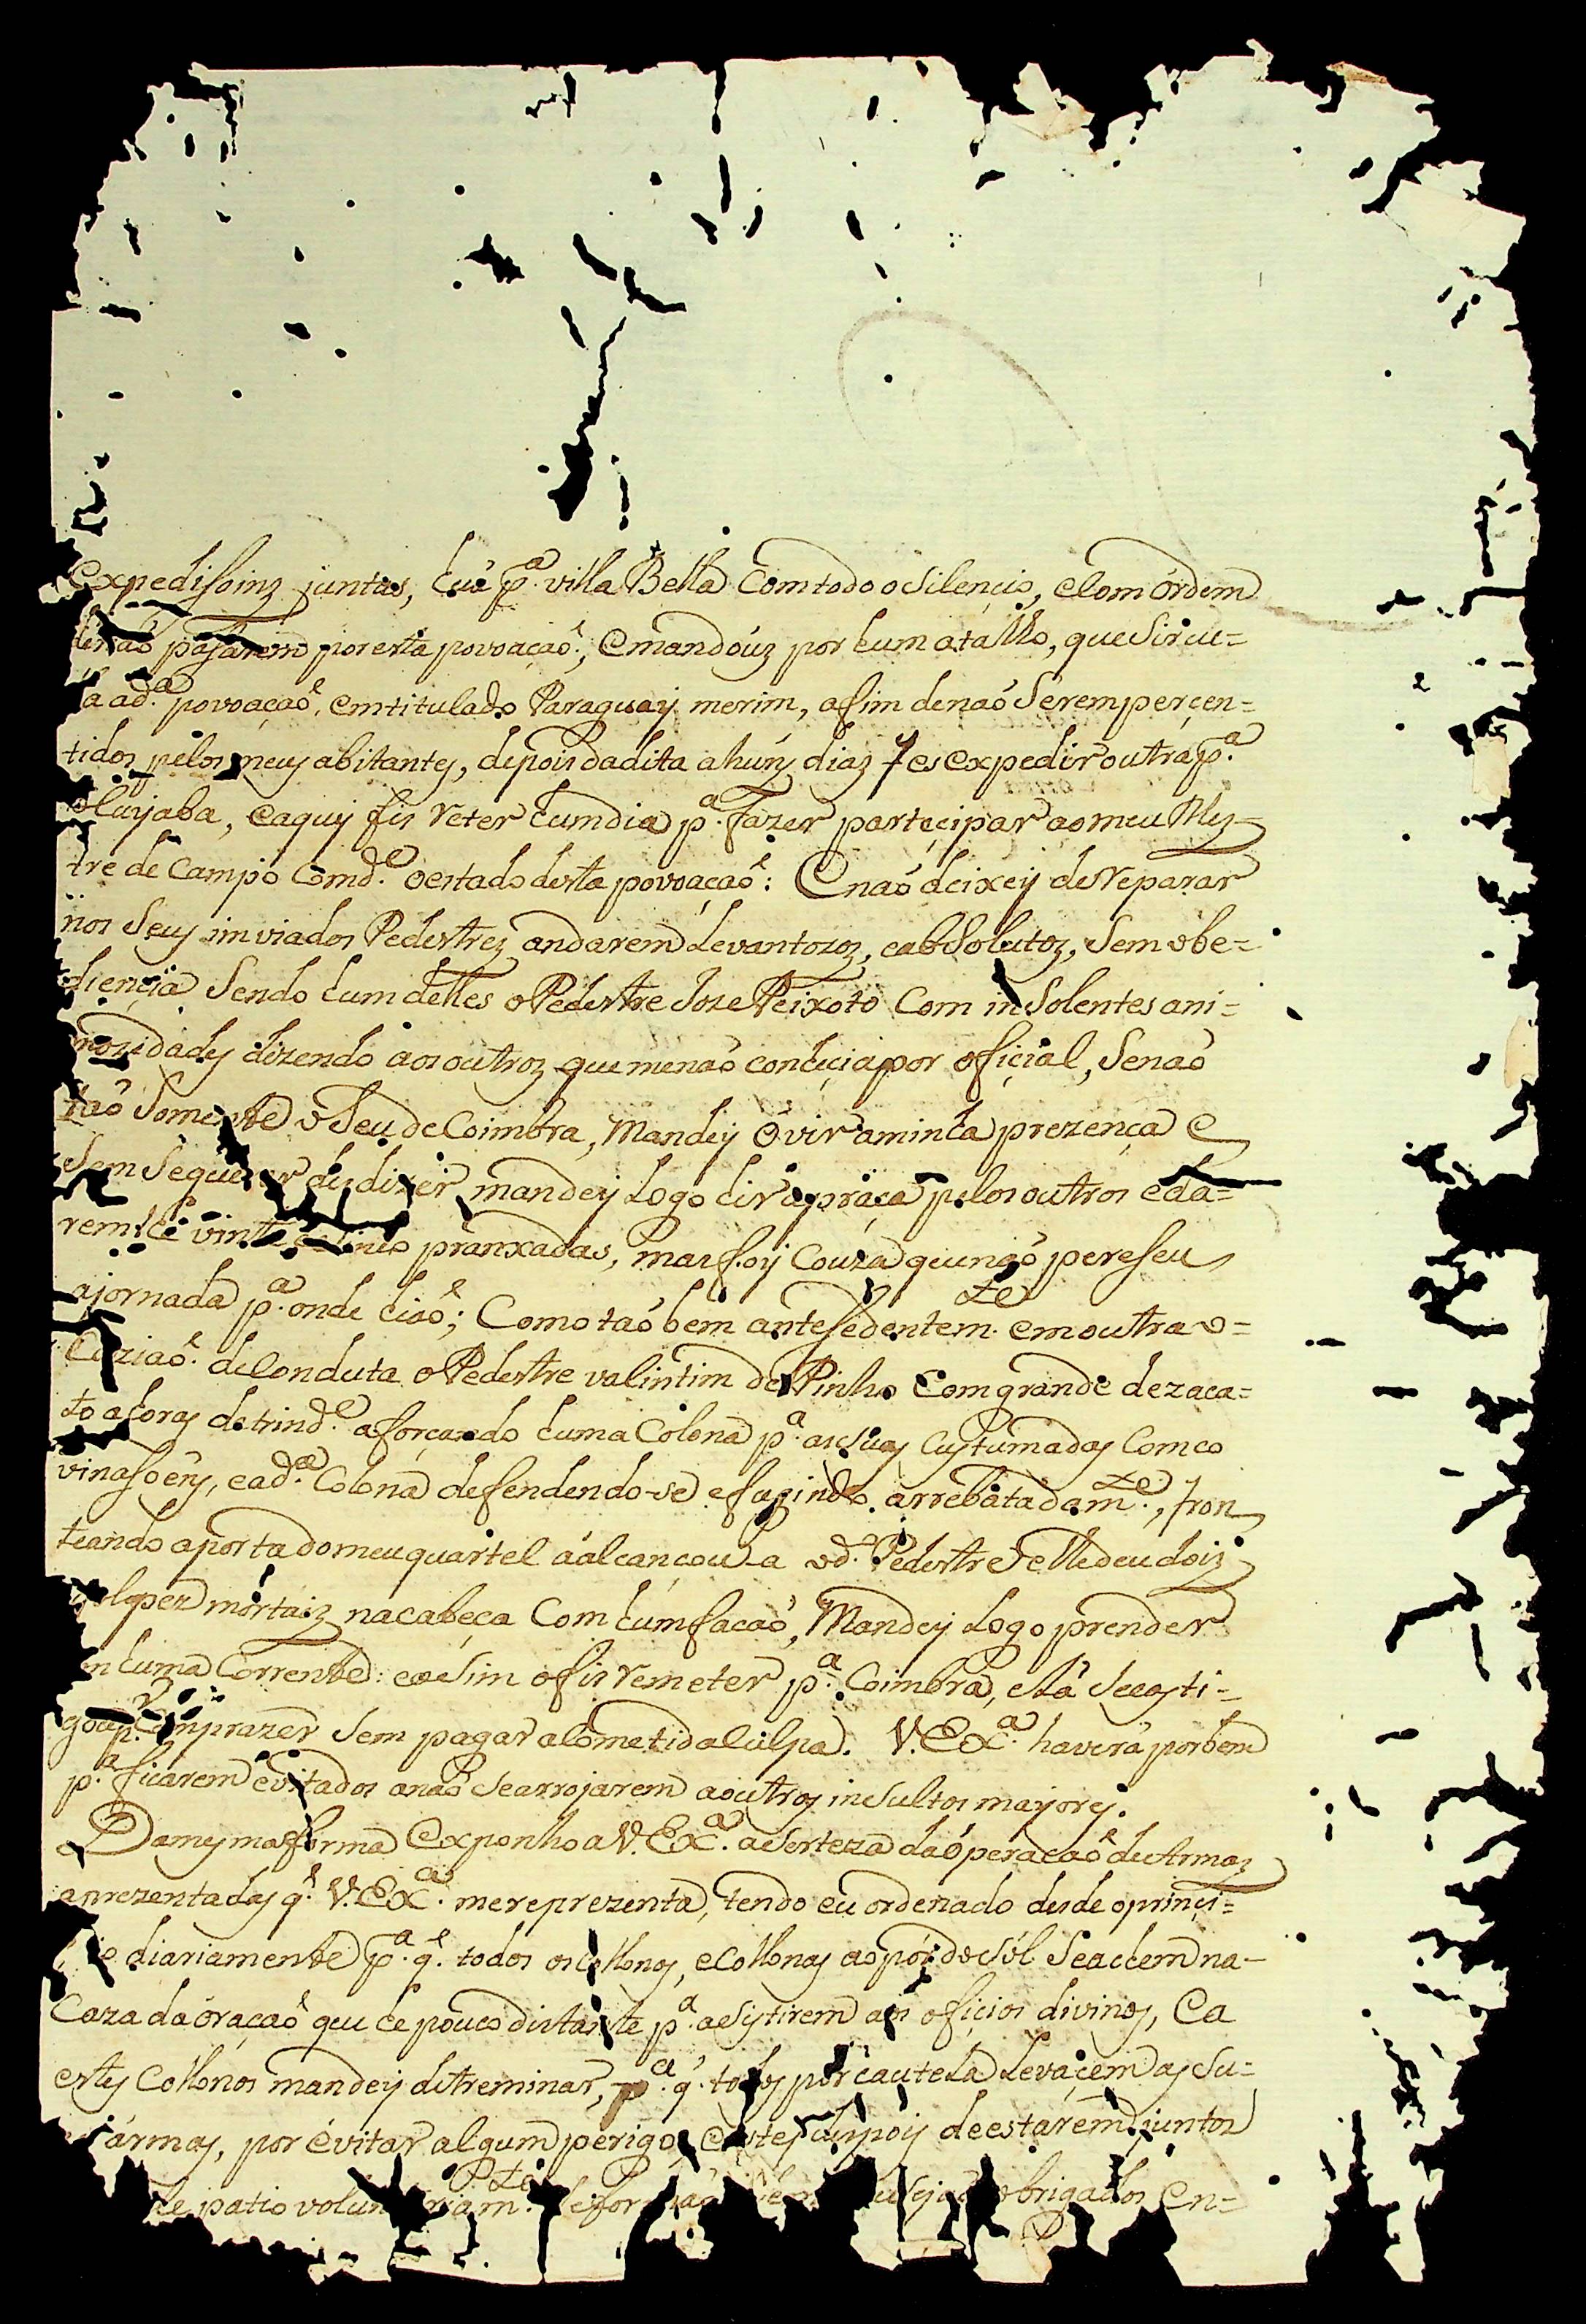 expedisoinz juntas, huã p.ª villa Bella Com todo o silençio, e Com órdem
denaõ pasarem por esta povoaçaõ, e mandóuz por hum atalho, que sircu=
a ad.ª povoaçaõ, emtitulado Paraguay merim, afim denaõ Serem perçen=
tidos pelos meus abitantes, depois dadita ahúns diaz fes expedir outra p.ª
o Cuyaba, e aquy fis reter hum dia p.ª fazer parteçipar ao meu Mez
tre de Campo Comd.e o estado desta povoaçaõ: E naõ deixey de reparar
nos Seus imviados Pedestrez andarem Levantozoz, e abSolutoz, Sem obe=
diençia Sendo hum delles o Pedestre Joze Peixoto Com inSolentes ani=
mozidades dizendo aos outroz que me naõ conheçia por ofiçial, Senaõ
taõ Somente o Seu de Coimbra, Mandey o vir a minha prezença e
Sem Sequerer desdizer mandey Logo hir a praça pelos outros e da=
rem lhe vinte e sinco pranxadas, mas foy Couza que naõ pereseu
a jornada p.ª onde hiaõ; Como taõ bem antesedentem.te em outra o=
Caziaõ de Conduta o Pedestre valintim de Pinho Com grande dezaca=
to a horas de trind.e aforçando huma Colona p.ª as suas Custumadas Comco
vinasoẽns, e ad.ª Colona defendendo-se e fugindo arrebatadam.te, fron
teando a porta do meu quartel á alcançou-a o d.o Pedestre e lhe deu doiz
golpez mortaiz na cabeça Com húm facaõ, Mandey Logo prender
en huma Corrente: e aSim o fis remeter p.ª Coimbra, e Lá Se casti=
gou p.r Comprazer Sem pagar a Cometida Culpa. V. Ex.ª haverá por bem
p.ª ficarem evitados a naõ se arrojarem a outros insultos mayores.
Damesma forma Exponho a V. Ex.ª a Serteza da óperacaõ de Armaz
aprezentadas q.e V. Ex.ª me reprezenta, tendo eu ordenado desde o prinçi=
pio diariamente p.ª q.e todos os Collonos, e Collonas ao pôr do Sól Se achem na
Caza da óraçaõ que he pouco distante p.ª aSistirem aos ofiçios divinos, E a
estes Collonos mandey ditreminar, p.ª q.e todos por cautela Levaçem as Su=
as ármas, por évitar algum perigo, e estes depois de estarem juntos
patio voluntariam.te obrigados en=